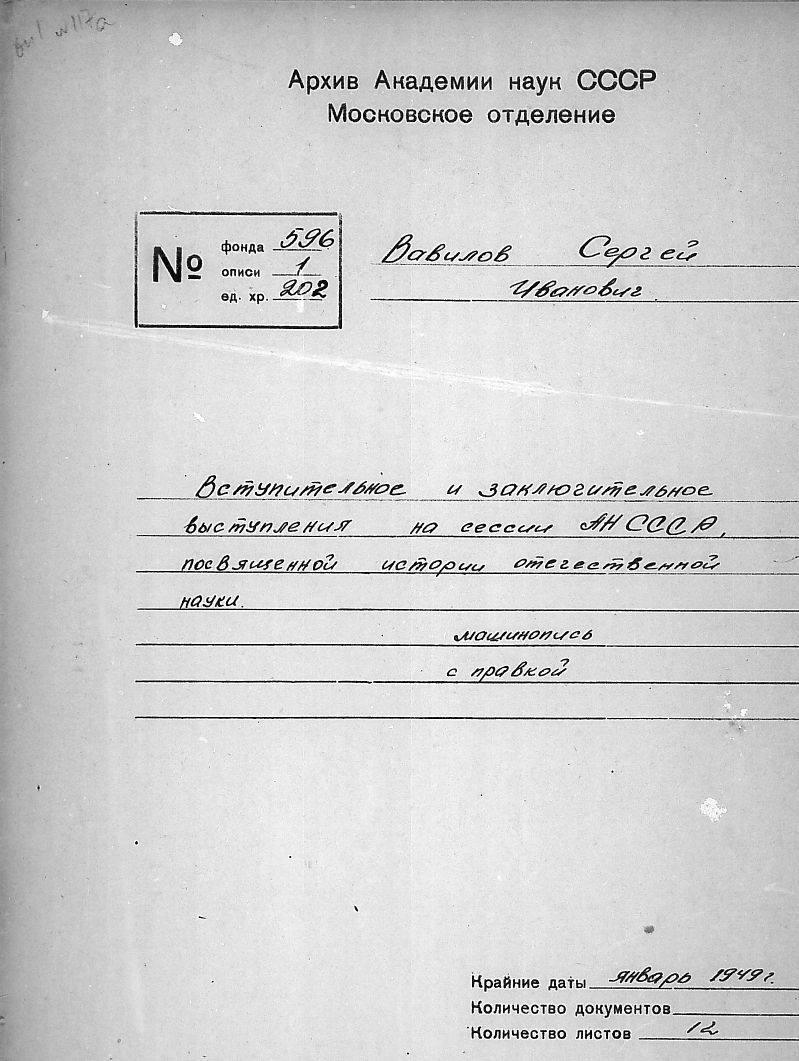 Архив Академии наук СССР
Московское отделение
№
фонда 596
описи 1
ед. хр. 202
Вавилов Сергей
Иванович
Вступительное и заключительное
выступления на сессии АН СССР,
посвященной истории отечественной
науки.
машинопись
с правкой
Крайние даты январь 1949 г.
Количество документов
Количество листов 12